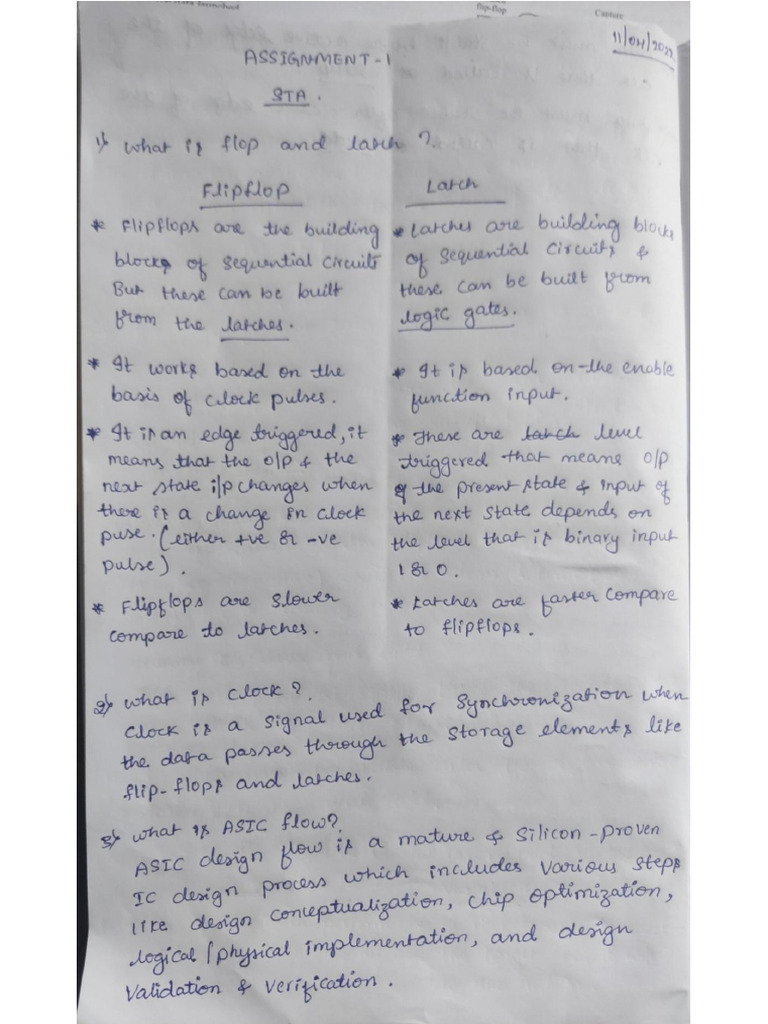 flip-flop
Capture
11/04/2022
ASSIGNMENT-1
STA.
1) what is flop and latch ?.
Flipflop
* Flipflops are the building
blocks of sequential circuits
But these can be built
from the latches.
* It works based on the
basis of clock pulses.
* It is an edge triggered, it
means that the o/p & the
next state i/p changes when
there is a change in clock
puse. (either +ve or -ve
pulse).
* Flipflops are slower
compare to latches.
Latch
* Latches are building blocks
of sequential circuits &
these can be built from
logic gates.
* It is based on the enable
function input.
* These are latch level
triggered that means o/p
of the present state & input of
the next state depends on
the level that is binary input
1 & 0.
* Latches are faster compare
to flipflops.
2) what is clock ?.
clock is a signal used for synchronization when
the data passes through the storage elements like
flip-flops and latches.
3) what is ASIC flow?.
ASIC design flow is a mature & silicon-proven
IC design process which includes various steps
like design conceptualization, chip optimization,
logical/physical implementation, and design
validation & verification.